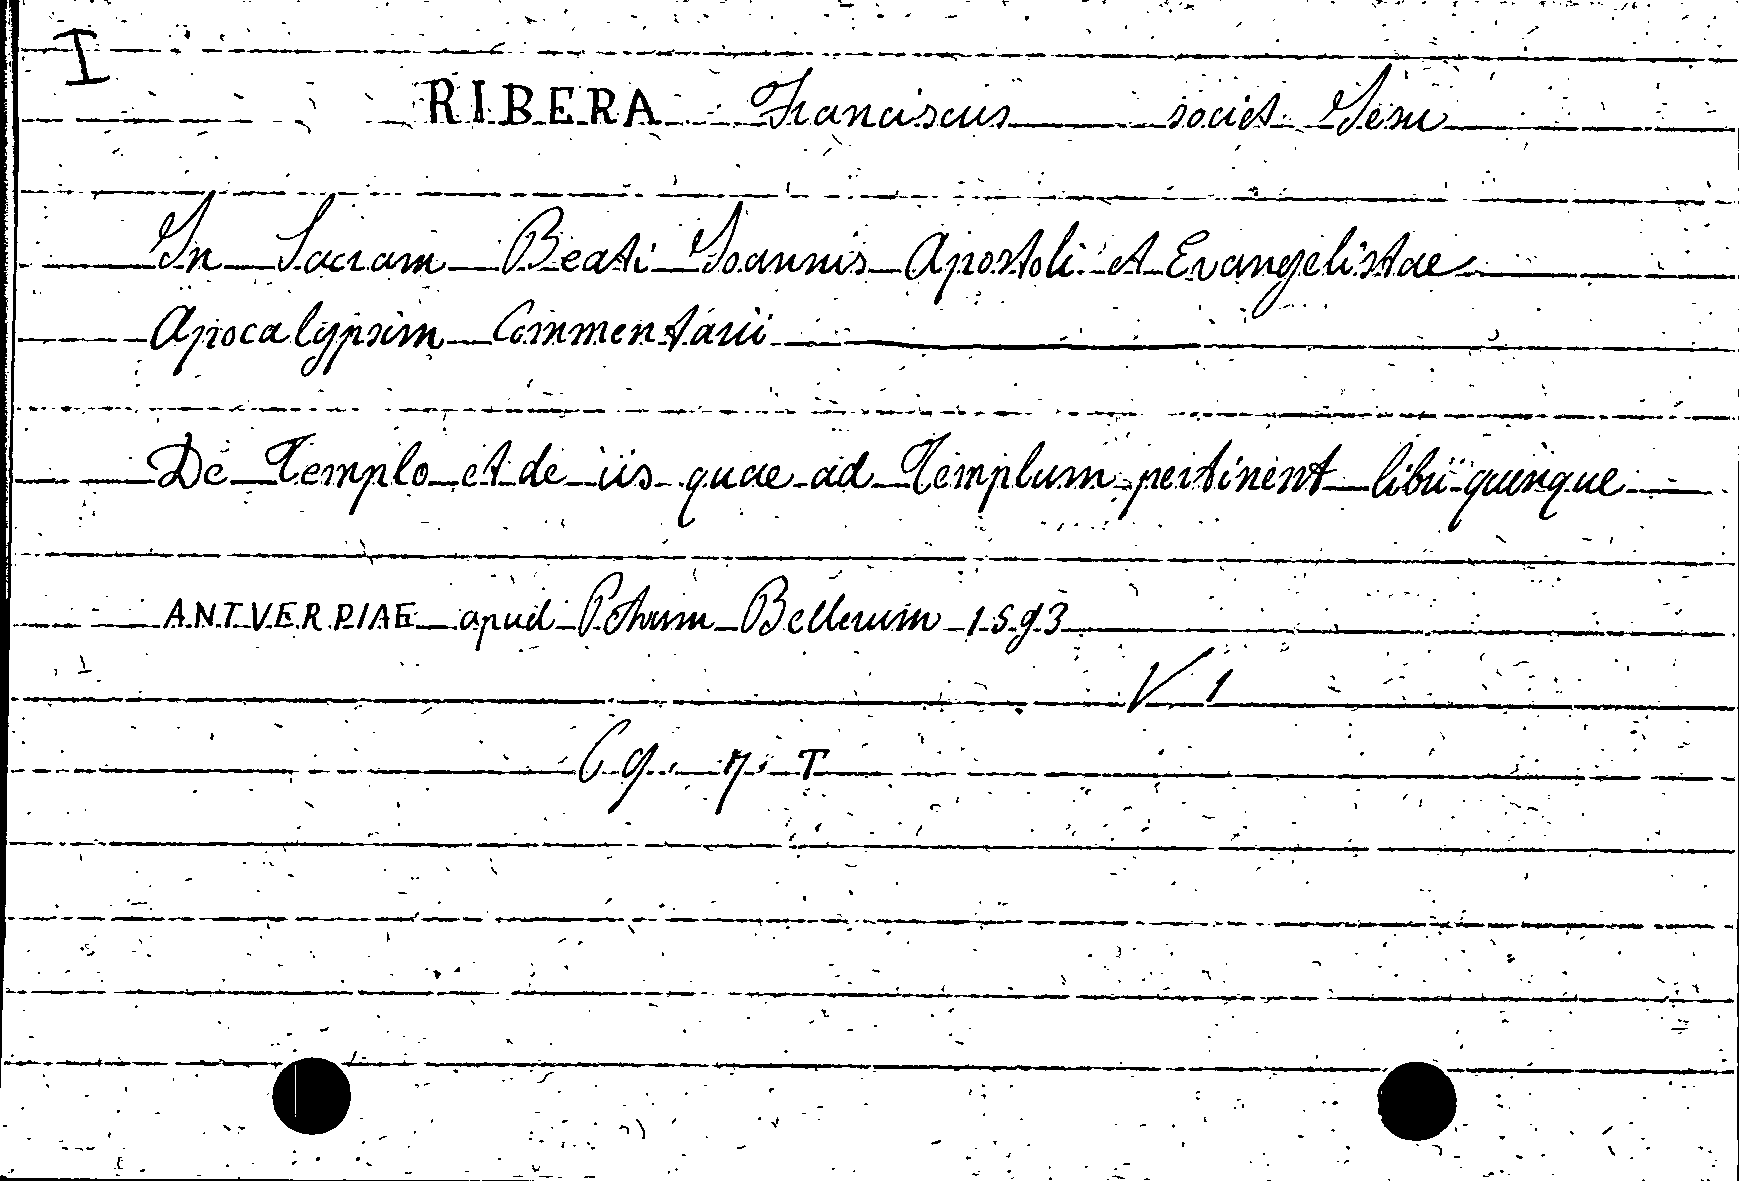 I
RIBERA Franciscus societ Jesu
In Sacram Beati Joannis Apostoli et Evangelistae
Apocalypsim Commentarii
De Templo et de iis quae ad Templum pertinent libri quinque
ANTVERPIAE apud Petrum Bellerum 1593
V 1
C 9. 7. T